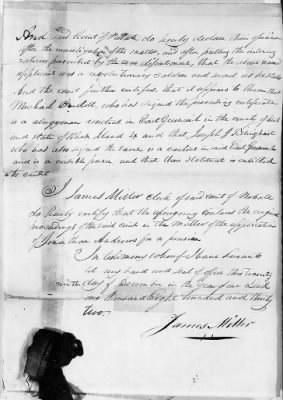 And said Court of Probate do hereby declare their opinion
after the investigation of the matter, and after putting the interrog
atories prescribed by the war department, that the above named
applicant was a revolutionary soldier and served as he states
And the court further certifies that it appears to them that
who has signed the preceding certificate
is a clergyman resident in East Greenwich in the county of Kent
and state of Rhode Island & and that Joseph J
who has also signed the same is a resident in said East Greenwich
and is a credible person and that their statement is entitled
to credit
I James Miller clerk of said court of Probate
do hereby certify that the foregoing contains the original
proceedings of the said court in the matter of the application
of Jonathan Andrews for a pension
In testimony whereof I have hereunto
set my hand and seal of office this twenty
ninth day of December in the year of our Lord
one thousand Eight hundred and thirty
two.
James Miller